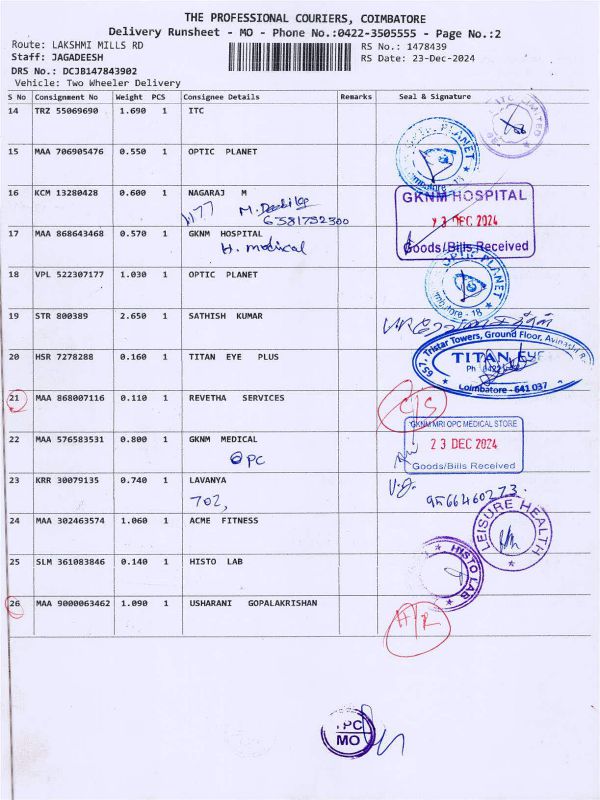 THE PROFESSIONAL COURIERS, COIMBATORE
Delivery Runsheet - MO - Phone No.:0422-3505555 - Page No.:2
Route: LAKSHMI MILLS RD
RS No.: 1478439
Staff: JAGADEESH
RS Date: 23-Dec-2024
DRS No.: DCJB147843902
Vehicle: Two Wheeler Delivery
S No Consignment No Weight PCS Consignee Details Remarks Seal & Signature
14 TRZ 55069690 1.690 1 ITC
ITC LIMITED
15 MAA 706905476 0.550 1 OPTIC PLANET
OPTIC PLANET
16 KCM 13280428 0.600 1 NAGARAJ M
6381752300
GKNM HOSPITAL
23 DEC 2024
Goods/Bills Received
17 MAA 868643468 0.570 1 GKNM HOSPITAL
H. medical
18 VPL 522307177 1.030 1 OPTIC PLANET
OPTIC PLANET
Coimbatore - 18
19 STR 800389 2.650 1 SATHISH KUMAR
20 HSR 7278288 0.160 1 TITAN EYE PLUS
657, Tristar Towers, Ground Floor, Avinashi R
TITAN EYE
Ph : 0422
Coimbatore - 641 037
21 MAA 868007116 0.110 1 REVETHA SERVICES
C/S
22 MAA 576583531 0.800 1 GKNM MEDICAL
OPC
GKNM MRI OPC MEDICAL STORE
23 DEC 2024
Goods/Bills Received
23 KRR 30079135 0.740 1 LAVANYA
702,
9566460273
24 MAA 302463574 1.060 1 ACME FITNESS
LEISURE HEALTH
25 SLM 361083846 0.140 1 HISTO LAB
HISTO LAB
26 MAA 9000063462 1.090 1 USHARANI GOPALAKRISHAN
A/R
PC
MO